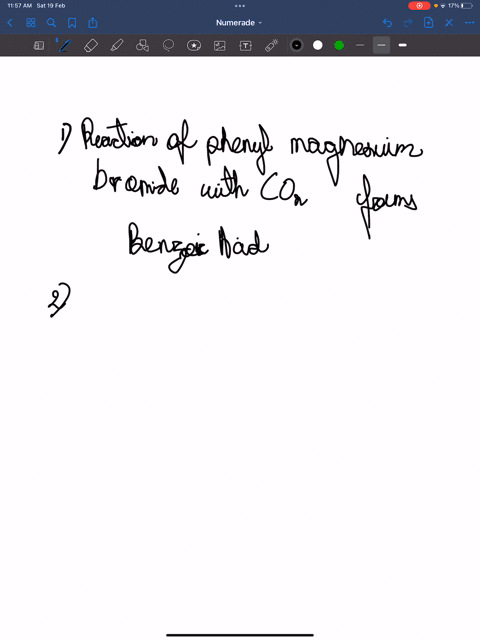 11:57 AM Sat 19 Feb
17%
Numerade
1) Reaction of phenyl magnesium
bromide with CO₂ forms
Benzoic Acid
2)